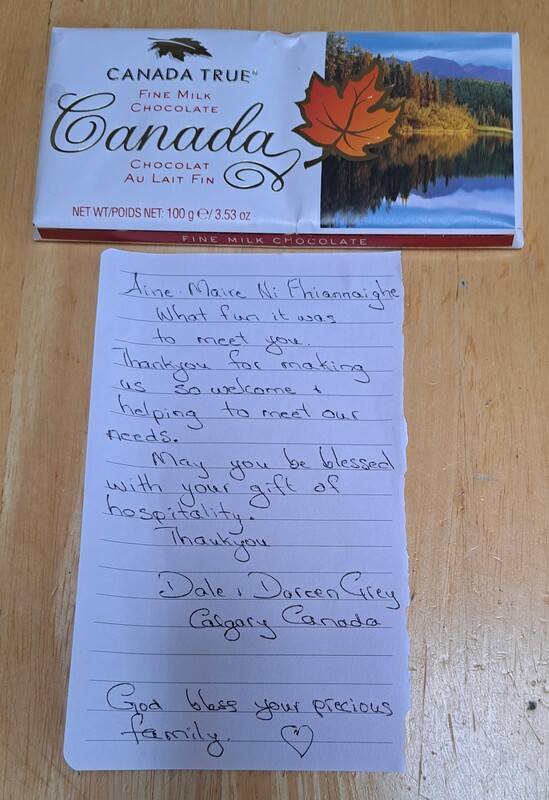 CANADA TRUE™
FINE MILK
CHOCOLATE
Canada
CHOCOLAT
AU LAIT FIN
NET WT/POIDS NET: 100 g ℮/ 3.53 oz
FINE MILK CHOCOLATE
Aine-Maire Ni Fhiannaighe
What fun it was
to meet you.
Thankyou for making
us so welcome &
helping to meet our
needs.
May you be blessed
with your gift of
hospitality.
Thankyou
Dale & Doreen Grey
Calgary Canada
God bless your precious
family. ♡